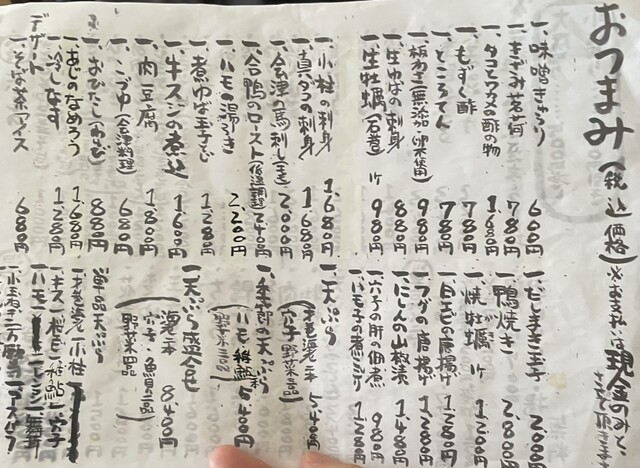 おつまみ(税込価格)※お支払は現金のみと、
一、味噌きゅうり 600円
一、きざみ茗荷 780円
一、タコとワカメの酢の物 1,680円
一、もずく酢 780円
一、ところてん 780円
一、板わさ 980円
一、生ゆばの刺身 880円
一、生牡蠣 1ケ 980円
一、小柱の刺身 1,680円
一、真ダコの刺身 1,680円
一、会津の馬刺し 2,000円
一、合鴨のロースト(低温調理) 2,400円
一、ハモの湯引き 2,200円
一、煮ゆば玉子 1,280円
一、牛スジの煮込 1,600円
一、肉豆腐 1,800円
一、こづゆ(会津料理) 680円
一、おひたし 880円
一、あじのなめろう 1,680円
一、冷しなす 1,280円
デザート
一、そば茶アイス 680円
一、だしまき玉子 2,000円
一、鴨焼き 2,800円
一、焼牡蠣 1ケ 1,200円
の唐揚げ 1,280円
一、フグの唐揚げ 1,280円
一、にしんの山椒漬 1,480円
一、穴子の肝の佃煮 980円
一、ハモ子の煮こごり 1,280円
一、天ぷら
5,400円
一、季節の天ぷら
5,400円
一、天ぷら盛合せ
8,480円
海老
穴子・魚
野菜四品
単品天ぷら
小柱
一、キス 穴子
一、ハモ